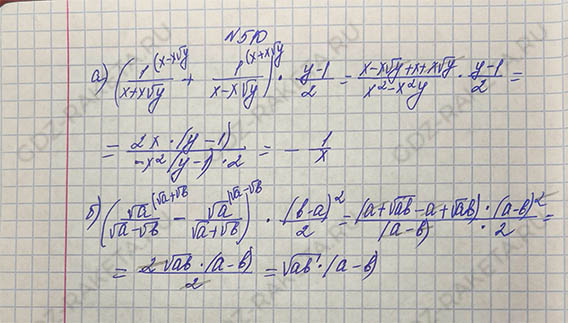 №510
а) (1/(x+x√y) ^(x-x√y) + 1/(x-x√y) ^(x+x√y)) · (y-1)/2 = (x-x√y+x+x√y)/(x²-x²y) · (y-1)/2 =
= (2x·(y-1))/(-x²(y-1)·2) = -1/x
б) (√a/(√a-√b) ^(√a+√b) - √a/(√a+√b) ^(√a-√b)) · (b-a)²/2 = ((a+√ab-a+√ab)·(a-b)²)/((a-b)·2) =
= (2√ab·(a-b))/2 = √ab·(a-b)
GDZ-RAKETA.RU